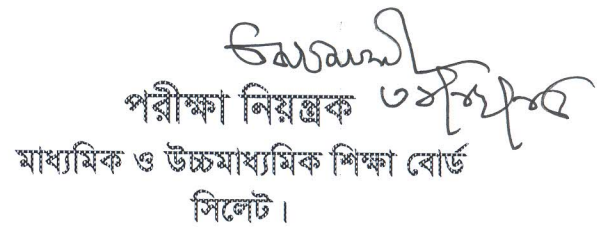 পরীক্ষা নিয়ন্ত্রক
মাধ্যমিক ও উচ্চমাধ্যমিক শিক্ষা বোর্ড
সিলেট।